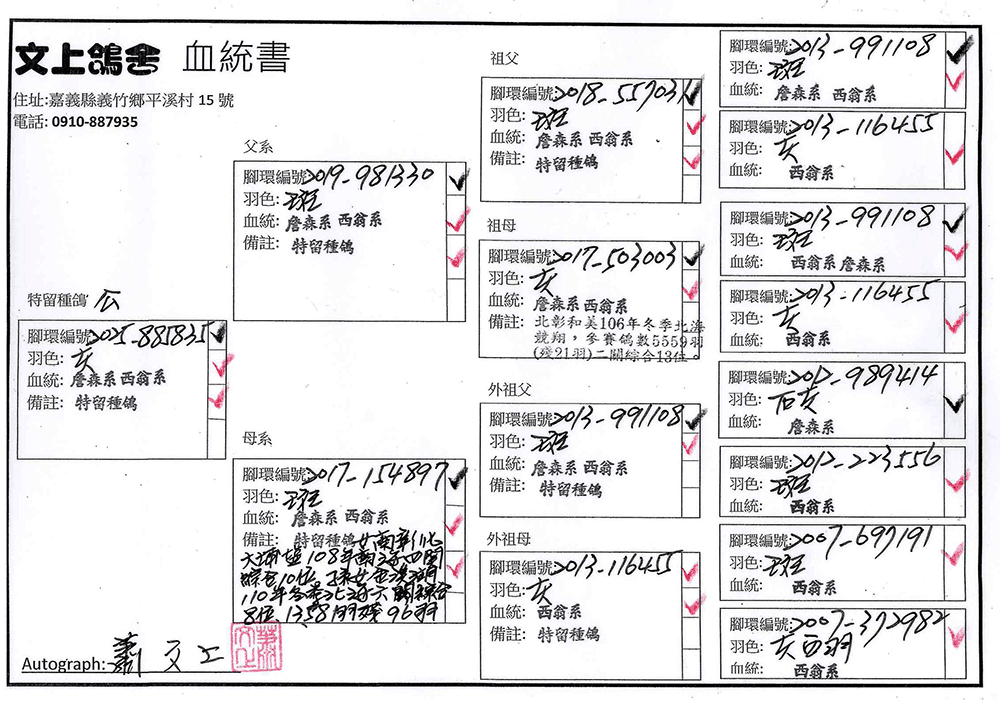 文上鴿舍 血統書
住址:嘉義縣義竹鄉平溪村 15 號
電話: 0910-887935
特留種鴿
腳環編號:2025-885835
羽色: 灰
血統: 詹森系 西翁系
備註: 特留種鴿
父系
腳環編號:2019-981330
羽色: 斑
血統: 詹森系 西翁系
備註: 特留種鴿
母系
腳環編號:2017-154897
羽色: 斑
血統: 詹森系 西翁系
備註: 特留種鴿
108年
綜合10位
110年冬季 六關綜合
8位 1358羽殘96羽
祖父
腳環編號:2018-557031
羽色: 斑
血統: 詹森系 西翁系
備註: 特留種鴿
祖母
腳環編號:2017-503003
羽色: 灰
血統: 詹森系 西翁系
備註: 北彰和美106年冬季北海
競翔，參賽鴿數5559羽
(殘21羽)二關綜合13位。
外祖父
腳環編號:2013-991108
羽色: 斑
血統: 詹森系 西翁系
備註: 特留種鴿
外祖母
腳環編號:2013-116455
羽色: 灰
血統: 西翁系
備註: 特留種鴿
腳環編號:2013-991108
羽色: 斑
血統: 詹森系 西翁系
腳環編號:2013-116455
羽色: 灰
血統: 西翁系
腳環編號:2013-991108
羽色: 斑
血統: 西翁系 詹森系
腳環編號:2013-116455
羽色: 灰
血統: 西翁系
腳環編號:2012-989414
羽色: 石灰
血統: 詹森系
腳環編號:2012-223556
羽色: 斑
血統: 西翁系
腳環編號:2007-697191
羽色: 斑
血統: 西翁系
腳環編號:2007-372982
羽色: 灰白翎
血統: 西翁系
Autograph: 蕭文上
蕭文上